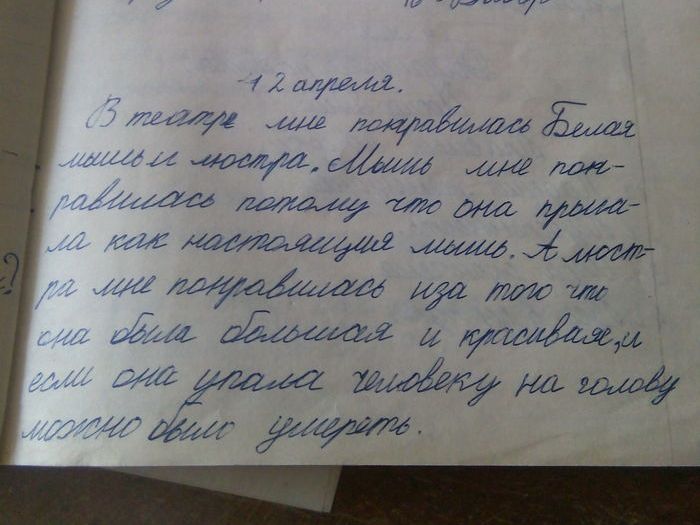 12 апреля.
В театре мне понравилась Белая
мышь и люстра. Мышь мне пон-
равилась потому что она прыга-
ла как настоящия мышь. А люст-
ра мне понравилась иза того что
она была большая и красивая, и
если она упала человеку на голову
можно было умереть.